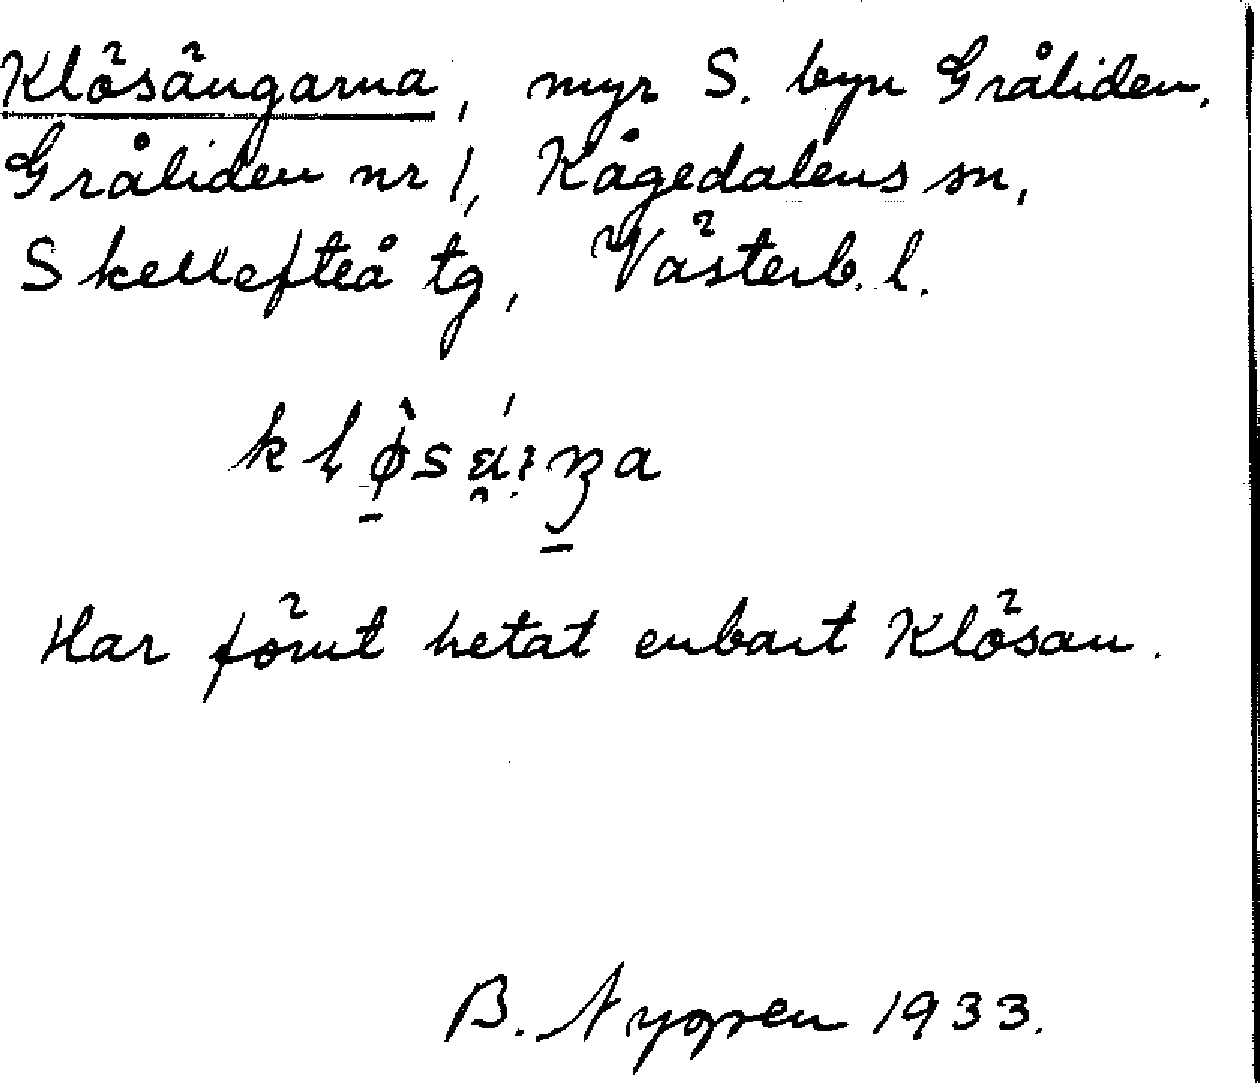 Klösängarna, myr S. byn Gråliden,
Gråliden nr 1, Kågedalens sn,
Skellefteå tg, Västerb. l.
Har förut hetat enbart Klösan.
B. Nygren 1933.